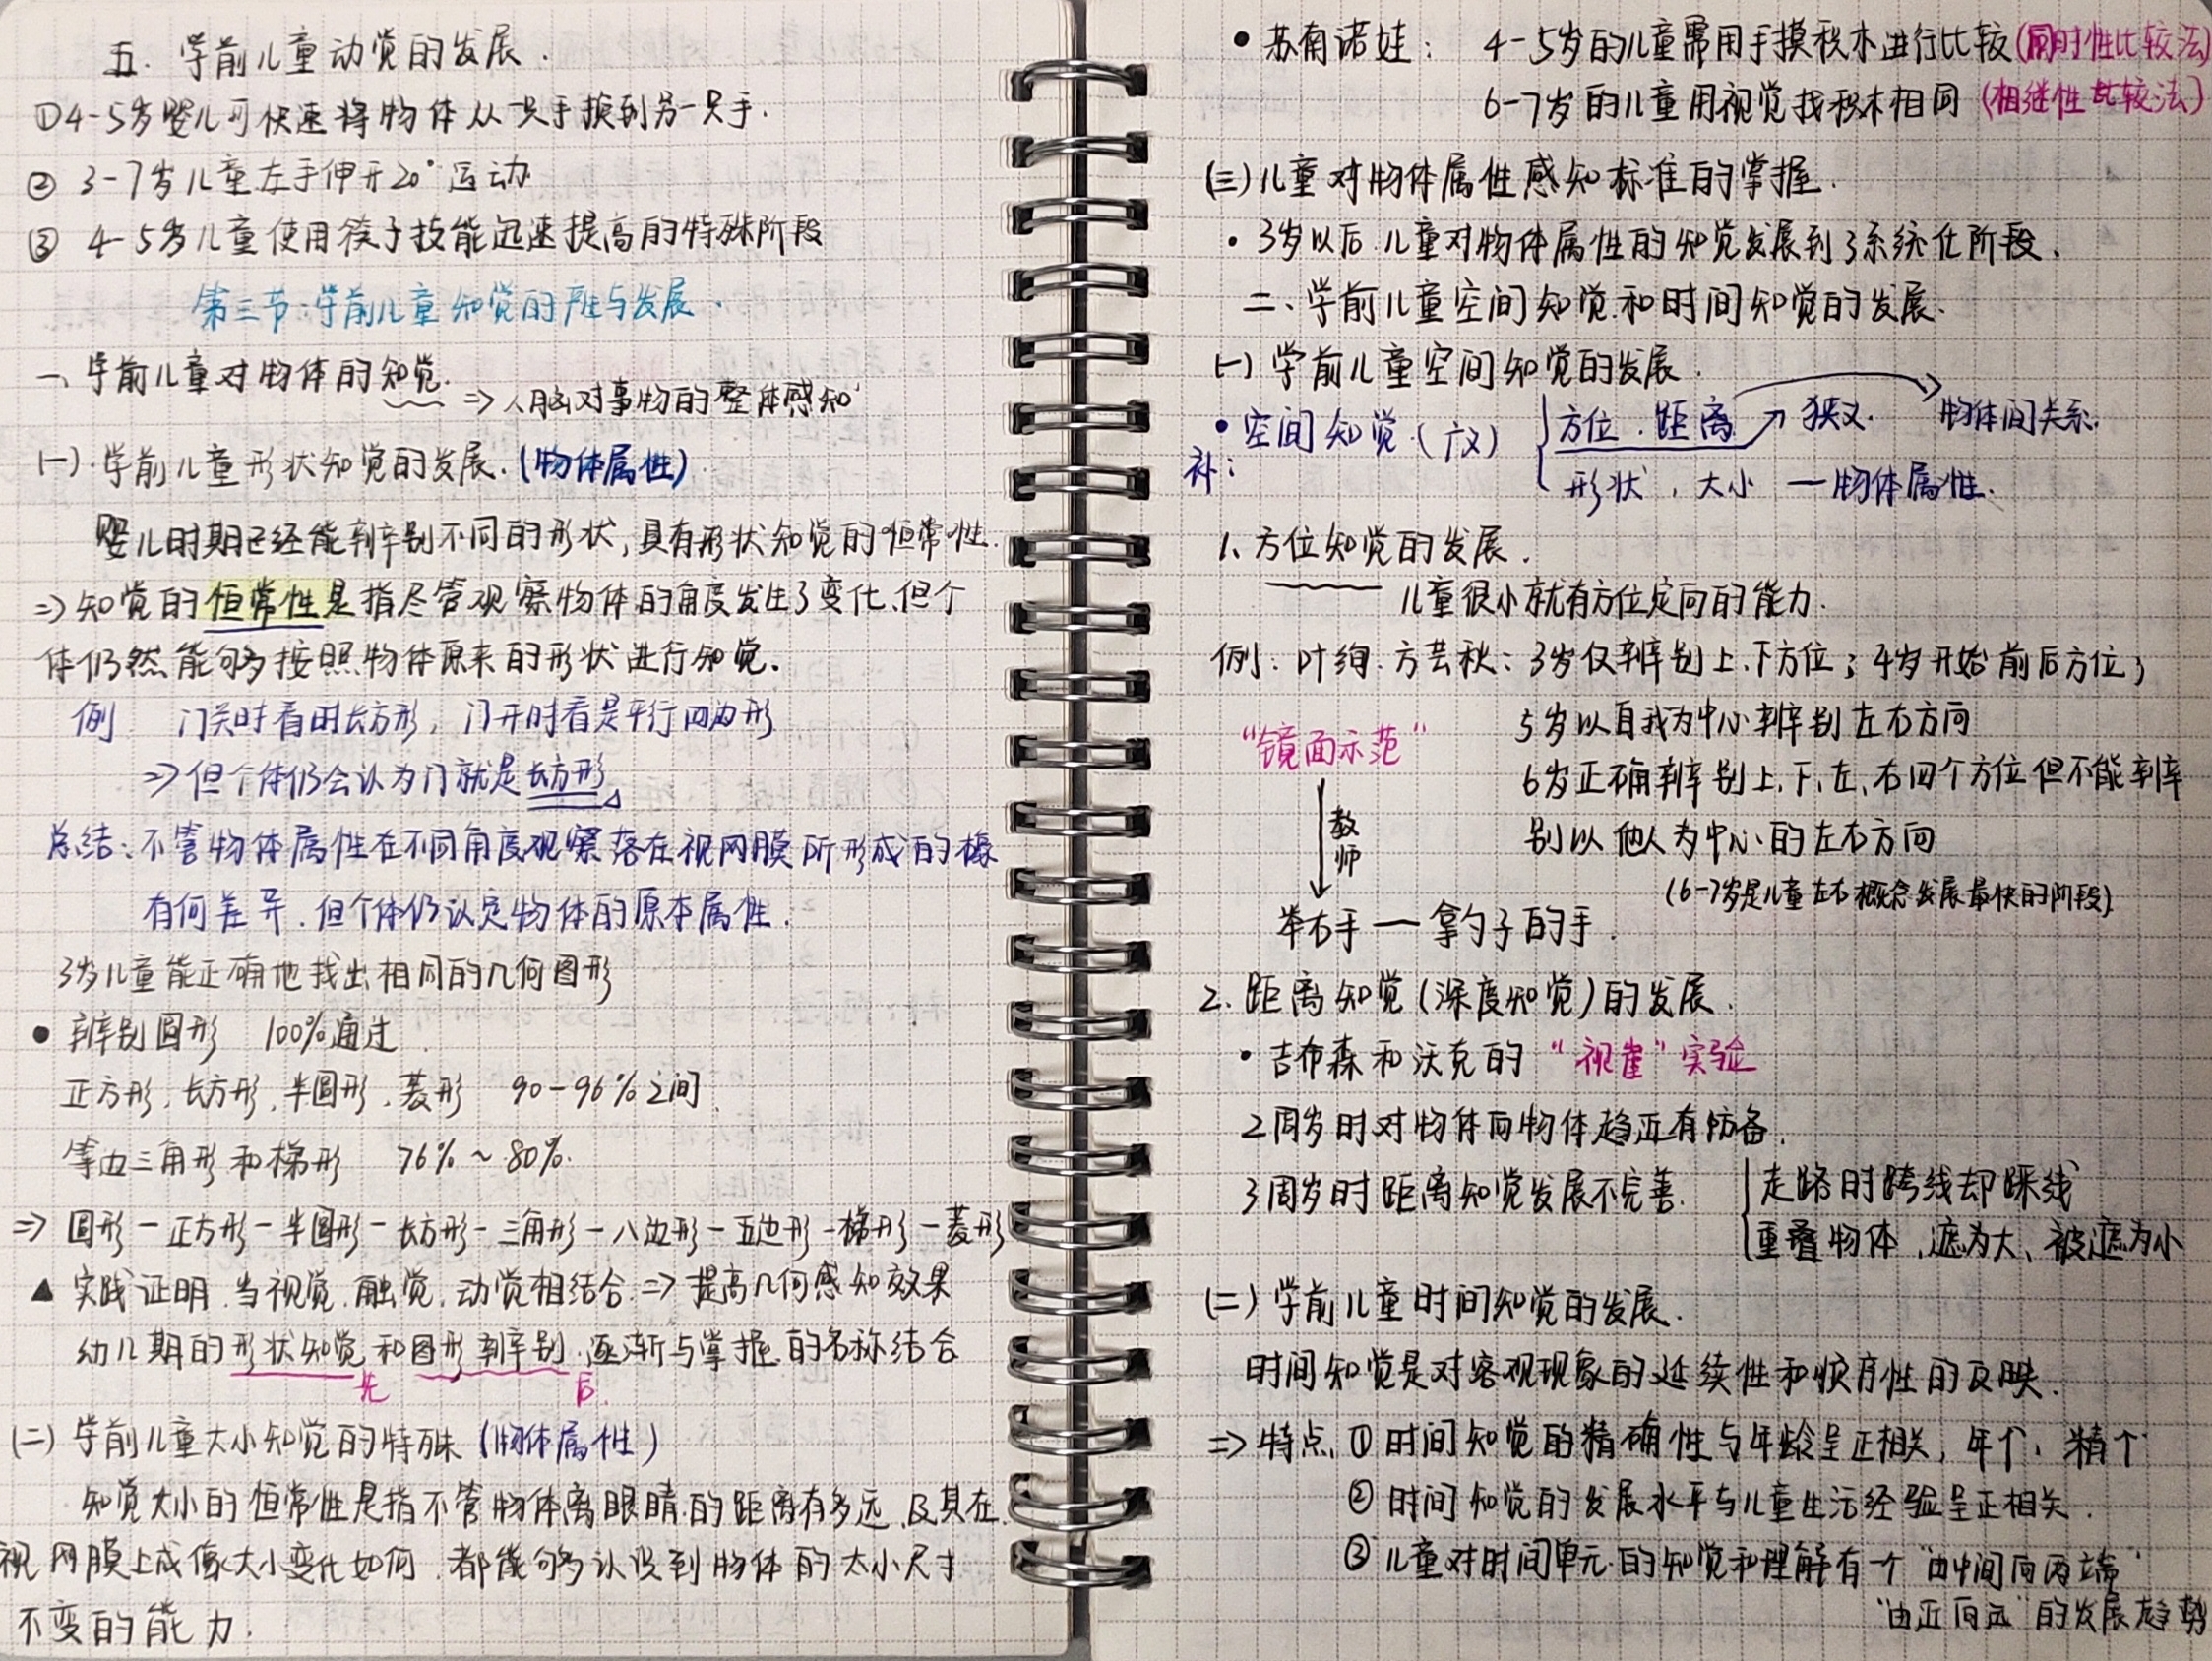 五. 学前儿童动觉的发展.
①4-5岁婴儿可快速将物体从一只手换到另一只手.
② 3-7岁儿童左手伸开20°运动
③ 4-5岁儿童使用筷子技能迅速提高的特殊阶段
第三节:学前儿童知觉的产生与发展.
一、学前儿童对物体的知觉. ⇒人脑对事物的整体感知
(一).学前儿童形状知觉的发展.(物体属性).
婴儿时期已经能辨别不同的形状,具有形状知觉的恒常性.
⇒知觉的恒常性是指尽管观察物体的角度发生了变化,但个
体仍然能够按照物体原来的形状进行知觉.
例 门关时看时长方形,门开时看是平行四边形
⇒但个体仍会认为门就是长方形
总结:不管物体属性在不同角度观察落在视网膜所形成的像
有何差异.但个体仍认定物体的原本属性.
3岁儿童能正确地找出相同的几何图形
• 辨别圆形 100%通过
正方形,长方形,半圆形,菱形 90-96%之间.
等边三角形和梯形 76%~80%.
⇒ 圆形-正方形-半圆形-长方形-三角形-八边形-五边形-梯形-菱形
▲ 实践证明.当视觉.触觉.动觉相结合⇒提高几何感知效果
幼儿期的形状知觉和图形辨别.逐渐与掌握的名称结合
先 后.
(二)学前儿童大小知觉的特殊(物体属性)
知觉大小的恒常性是指不管物体离眼睛的距离有多远.及其在
视网膜上成像大小变化如何.都能够认识到物体的大小尺寸
不变的能力.
• 苏南诺娃: 4-5岁的儿童需用手摸积木进行比较(同时性比较法)
6-7岁的儿童用视觉找积木相同(相继性比较法)
(三)儿童对物体属性感知标准的掌握.
• 3岁以后.儿童对物体属性的知觉发展到了系统化阶段.
二、学前儿童空间知觉和时间知觉的发展.
(一)学前儿童空间知觉的发展.
• 空间知觉(广义) 方位.距离→狭义. 物体间关系.
补: 形状,大小 —物体属性.
1、方位知觉的发展.
儿童很小就有方位定向的能力.
例:叶绚.方芸秋:3岁仅辨别上.下方位;4岁开始前后方位;
5岁以自我为中心辨别左右方向
“镜面示范”
6岁正确辨别上.下.左.右四个方位但不能辨
教师
别以他人为中心的左右方向
(6-7岁是儿童左右概念发展最快的阶段).
举右手—拿勺子的手.
2. 距离知觉(深度知觉)的发展.
• 吉布森和沃克的“视崖”实验
2周岁时对物体向物体趋近有防备.
3周岁时距离知觉发展不完善. 走路时跨线却踩线
重叠物体,遮为大、被遮为小
(二)学前儿童时间知觉的发展.
时间知觉是对客观现象的延续性和顺序性的反映.
⇒特点.①时间知觉的精确性与年龄呈正相关,年↑,精↑
②时间知觉的发展水平与儿童生活经验呈正相关.
③儿童对时间单元的知觉和理解有一个“由中间向两端”
“由近向远”的发展趋势